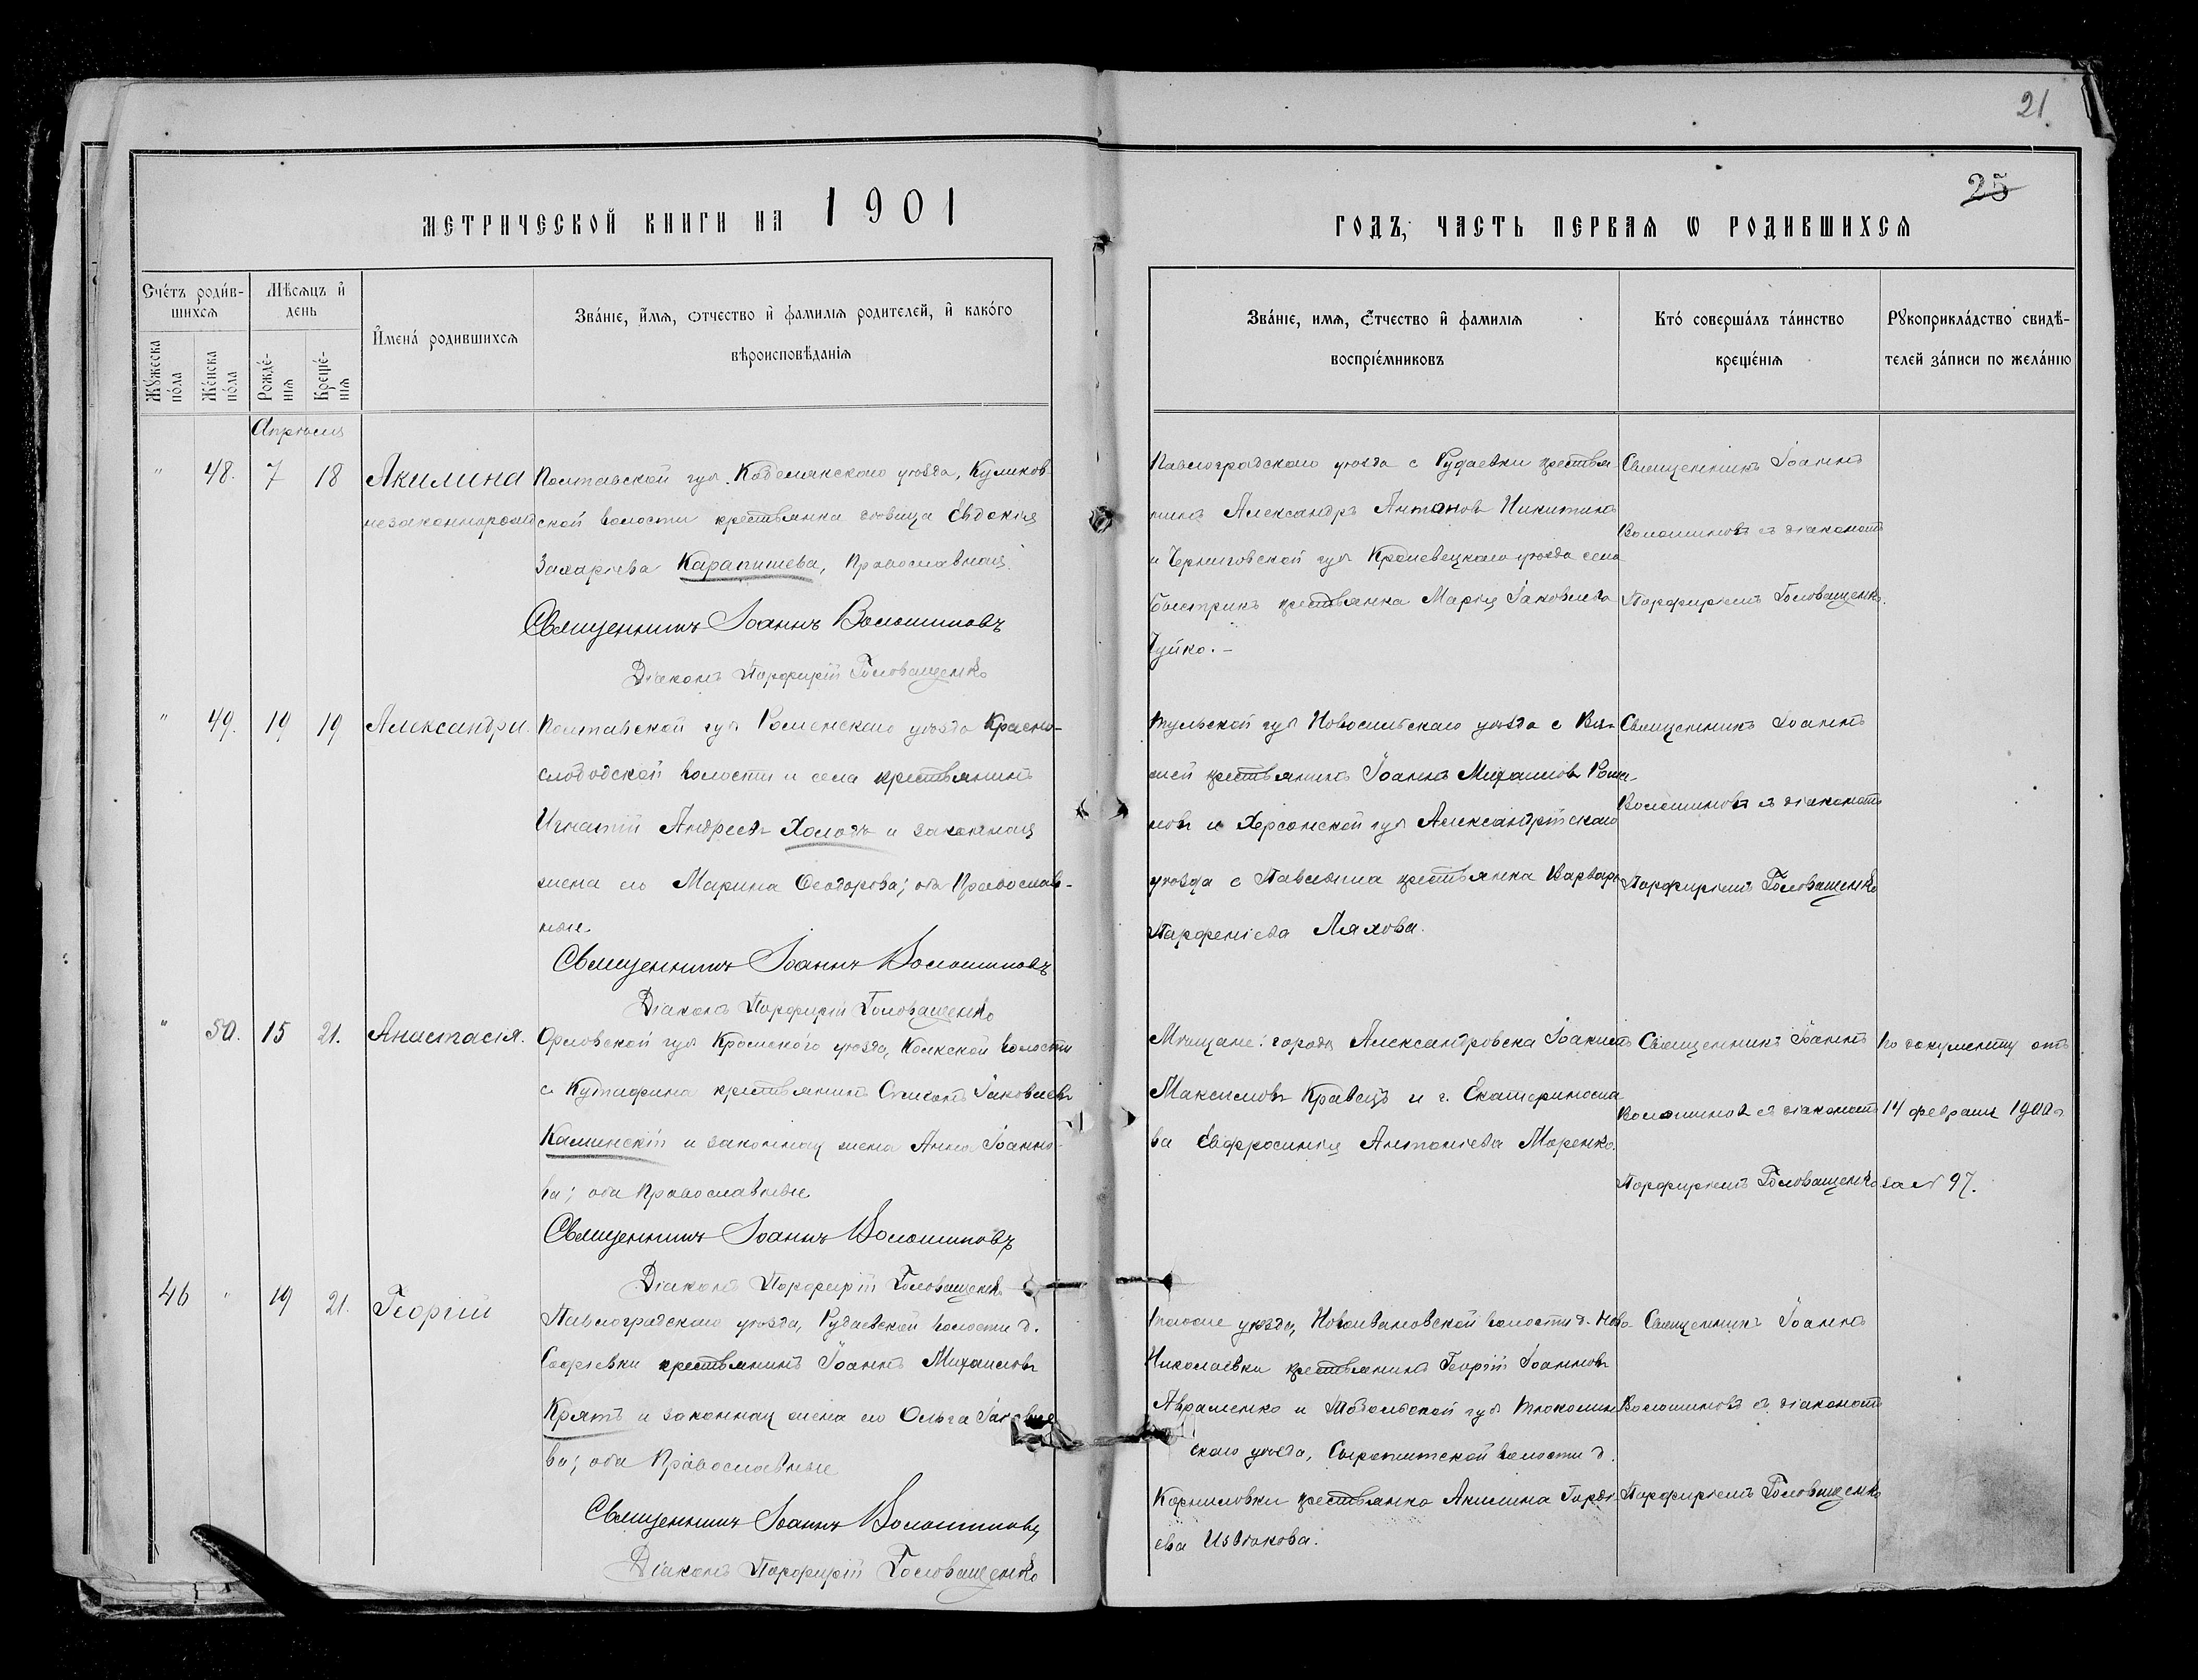 21
25
МЕТРИЧЕСКОЙ КНИГИ НА 1901
ГОДЪ, ЧАСТЬ ПЕРВАЯ Ѡ РОДИВШИХСЯ
Счётъ роди́в-
шихся
Мѣсяцъ и
день
Имена́ родившихся
Зва́нїе, и́мя, ѻтчество и фамилїя родителей, и како́го
вѣроисповѣданїя
Му́жеска
по́ла
Же́нска
по́ла
Рожде́-
нїя
Креще́-
нїя
Зва́нїе, имя, ѻтчество и фамилїя
воспрїе́мниковъ
Кто́ соверша́лъ та́инство
креще́нїя
Рꙋкоприкла́дство свидѣ-
телей за́писи по жела́нїю
Апрѣля
" 48. 7 18 Акилина
незаконнорожд
Полтавской губ. Кобелякскаго уѣзда, Куликов
ской волости крестьянка дѣвица Евдокія
Захаріева Карапишева, Православная.
Священникъ Іоаннъ Волошиновъ
Діаконъ Порфирій Головащенко
Павлоградскаго уѣзда с Рудаевки крестья
нинъ Александръ Антонов Никитинъ
и Черниговской губ Кролевецкаго уѣзда села
Быстрикъ крестьянка Марія Іаковлева
Чуйко. -
Священникъ Іоаннъ
Волошиновъ съ діакономъ
Порфиріемъ Головащенко.
" 49. 19 19 Александра.
Полтавской губ Роменскаго уѣзда Красно-
слободской волости и села крестьянинъ
Игнатій Андреевъ Холодъ и законная
жена его Марина Ѳеодорова; оба Православ-
ные.
Священникъ Іоаннъ Волошиновъ
Діаконъ Порфирій Головащенко
Тульской губ Новосильскаго уѣзда с
крестьянинъ Іоаннъ Михаиловъ Рома-
новъ и Херсонской губ Александрійскаго
уѣзда с крестьянка Варвара
Парѳеніева Ляхова.
Священникъ Іоаннъ
Волошиновъ съ діакономъ
Порфиріемъ Головащенко
" 50. 15 21. Анастасія.
Орловской губ Кромскаго уѣзда, волости
с крестьянинъ Іаковлевъ
Каминскій и законная жена Анна Іоанно-
ва; оба Православные
Священникъ Іоаннъ Волошиновъ
Діаконъ Порфирій Головащенко
Мѣщане: города Александровска Іоакимъ
Максимовъ Кравецъ и г. Екатериносла
ва Евфросинія Антоніева Моренко.
Священникъ Іоаннъ
Волошиновъ съ діакономъ
Порфиріемъ Головащенко
По документу отъ
14 февраля 1900 г
за № 97.
46 " 19 21. Георгій
Павлоградскаго уѣзда, Рудаевской волости д.
Софіевки крестьянинъ Іоаннъ Михаиловъ
Крятъ и законная жена его Ольга Іаковле
ва; оба Православные
Священникъ Іоаннъ Волошиновъ
Діаконъ Порфирій Головащенко
Тогоже уѣзда, Новоивановской волости д. Ново
Николаевки крестьянинъ Георгій Іоанновъ
Авраменко и Тобольской губ Тюкалин
скаго уѣзда, Сыропятской волости д.
Корниловки крестьянка Акилина Горді-
ева Извѣкова.
Священникъ Іоаннъ
Волошиновъ съ діакономъ
Порфиріемъ Головащенко